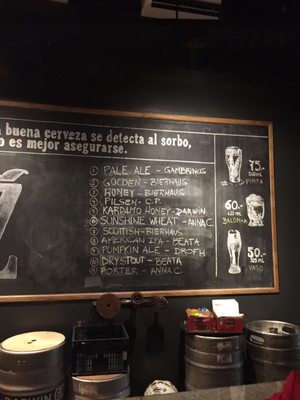 a buena cerveza se detecta al sorbo,
o es mejor asegurarse.
① PALE ALE - GAMBRINUS
② GOLDEN - BIERHAUS
③ HONEY - BIERHAUS
④ PILSEN - C.P.
⑤ KARDUMO HONEY - DARWIN
⑥ SUNSHINE WHEAT - ANNA C.
⑦ SCOTTISH - BIERHAUS
⑧ AMERICAN IPA - BEATA
⑨ PUMPKIN ALE - DROFH
⑩ DRY STOUT - BEATA
⑪ PORTER - ANNA C.
75.-
500ML
PINTA
60.-
BALDOMA
50.-
VASO
DARWIN